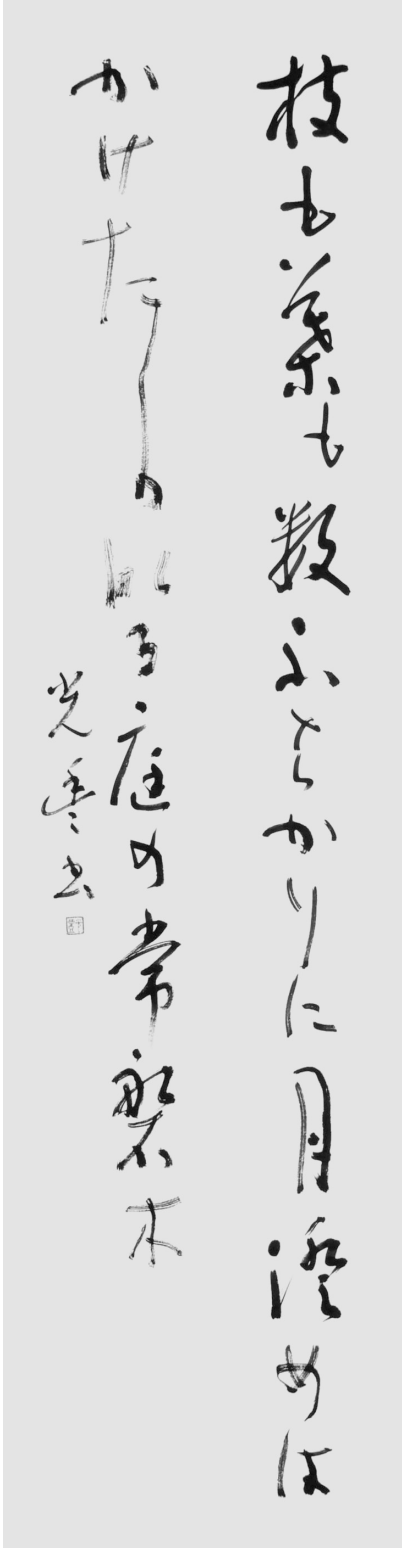 枝も葉も数ふはかりに月澄めは
かけたしかなる庭の常磐木
光書